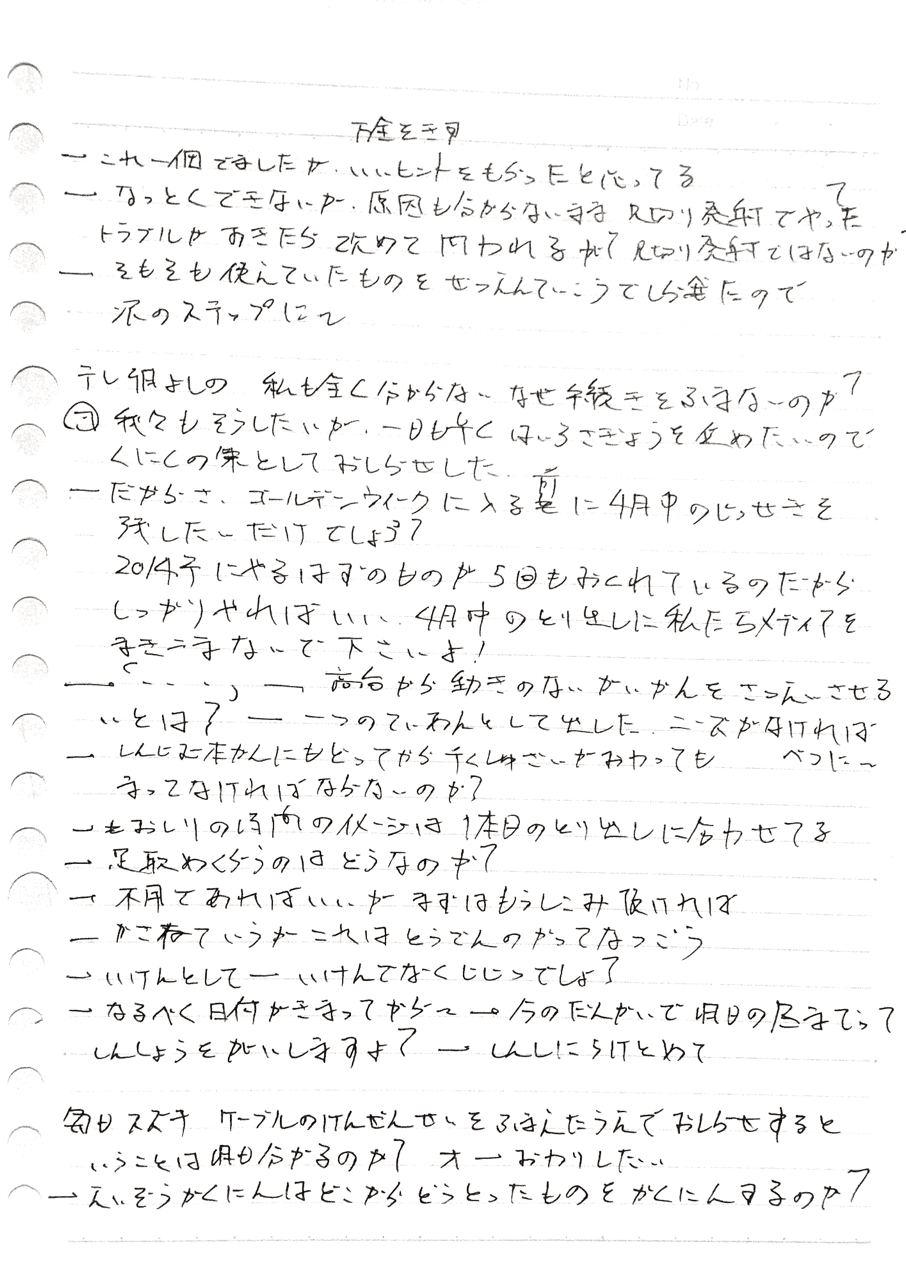 No.
Date
一 これ一個でましたが、いいヒントをもらったと思ってる
一 なっとくできないが、原因も分からないまま見切り発射でやって
トラブルがおきたら改めて問われるが?見切り発射ではないのか
一 そもそも使えていたものをぜつえんていこうで たので
次のステップに〜
テレ 私も全く分からない なぜ手続きをふまないのか?
我々もそうしたいが、一日も早く はいろさぎょうを止めたいので
くにくの策としておしらせした.
一 だからさ、ゴールデンウィークに入る前に4月中のじっせきを
残したいだけでしょう?
2014年にやるはずのものが5回もおくれているのだから
しっかりやればいい.4月中のとり出しに私たちメディアを
まきこまないで下さいよ!
一「・・・・」一 高台から動きのない かんをさつえいさせる
いとは? 一 一つのていあんとして出した.ニーズがなければ
べつに〜
一 本かんにもどってから しゅざいがおわっても
まってなければならないのか?
一 の イメージは1本目のとり出しに合わせてる
一 のはどうなのか?
一 不用であればいいが まずはもうしこみ頂ければ
一 かさねていうがこれはとうでんのかってなつごう
一 いけんとして一 いけんでなくじじつでしょ?
一 なるべく日付がきまってから〜 → 今のだんかいで明日の昼までって
しんしょうをがいしますよ? 一 しんしにうけとめて
毎日スズキ ケーブルのけんぜんせいをふまえたうえでおしらせすると
いうことは明日分かるのか? オ一 おわりしたい
一 えいぞうかくにんはどこからどうとったものをかくにんするのか?